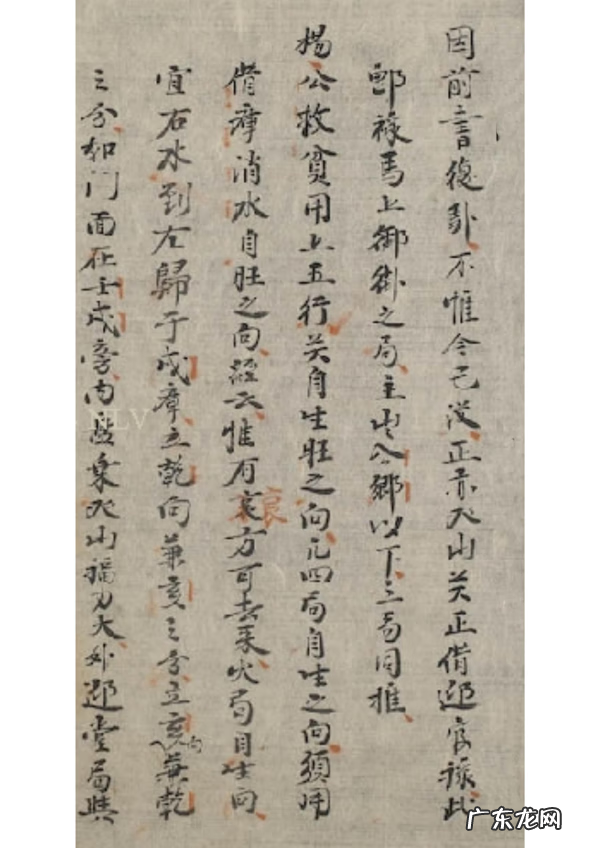 因前言後卦不惟令己没正亦天山关正借迎官祿此
郵祿馬上御街之局主出公卿以下三局同推
楊公救貧用上五行关自生旺之向凡四局自生之向須用
借庫消水自旺之向經云惟有衰方可去来火局自生向
衰
宜右水到左歸于戌庫立乾向兼亥三分立亥向兼乾
三分如門面在壬戌旁内益乘天山福力大外迎堂局與
NLV
广东龙网